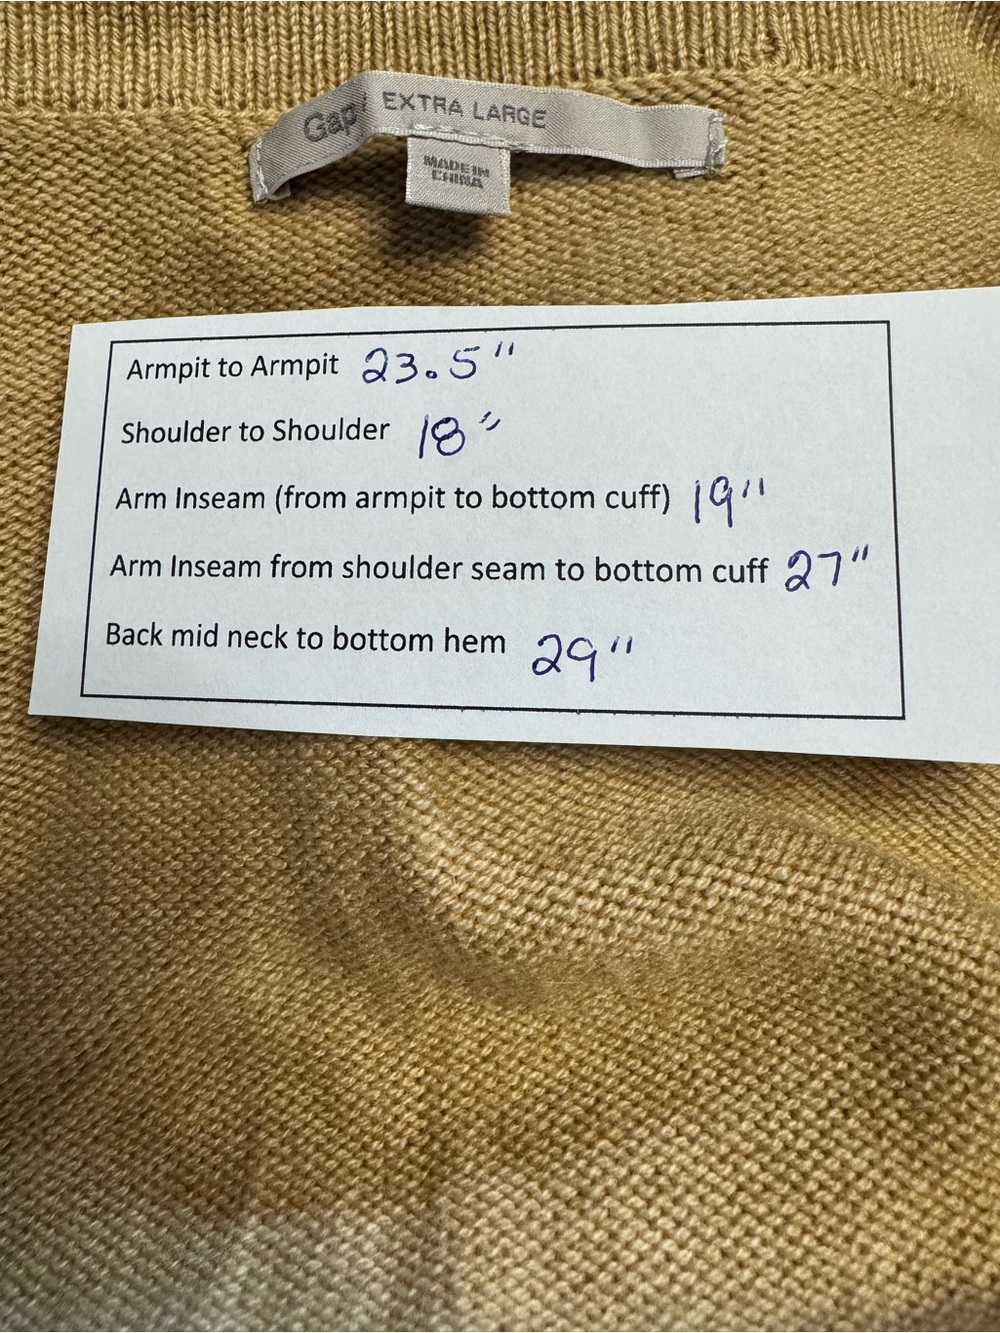 Gap
EXTRA LARGE
MADE IN
CHINA
Armpit to Armpit 23.5"
Shoulder to Shoulder 18"
Arm Inseam (from armpit to bottom cuff) 19"
Arm Inseam from shoulder seam to bottom cuff 27"
Back mid neck to bottom hem 29"